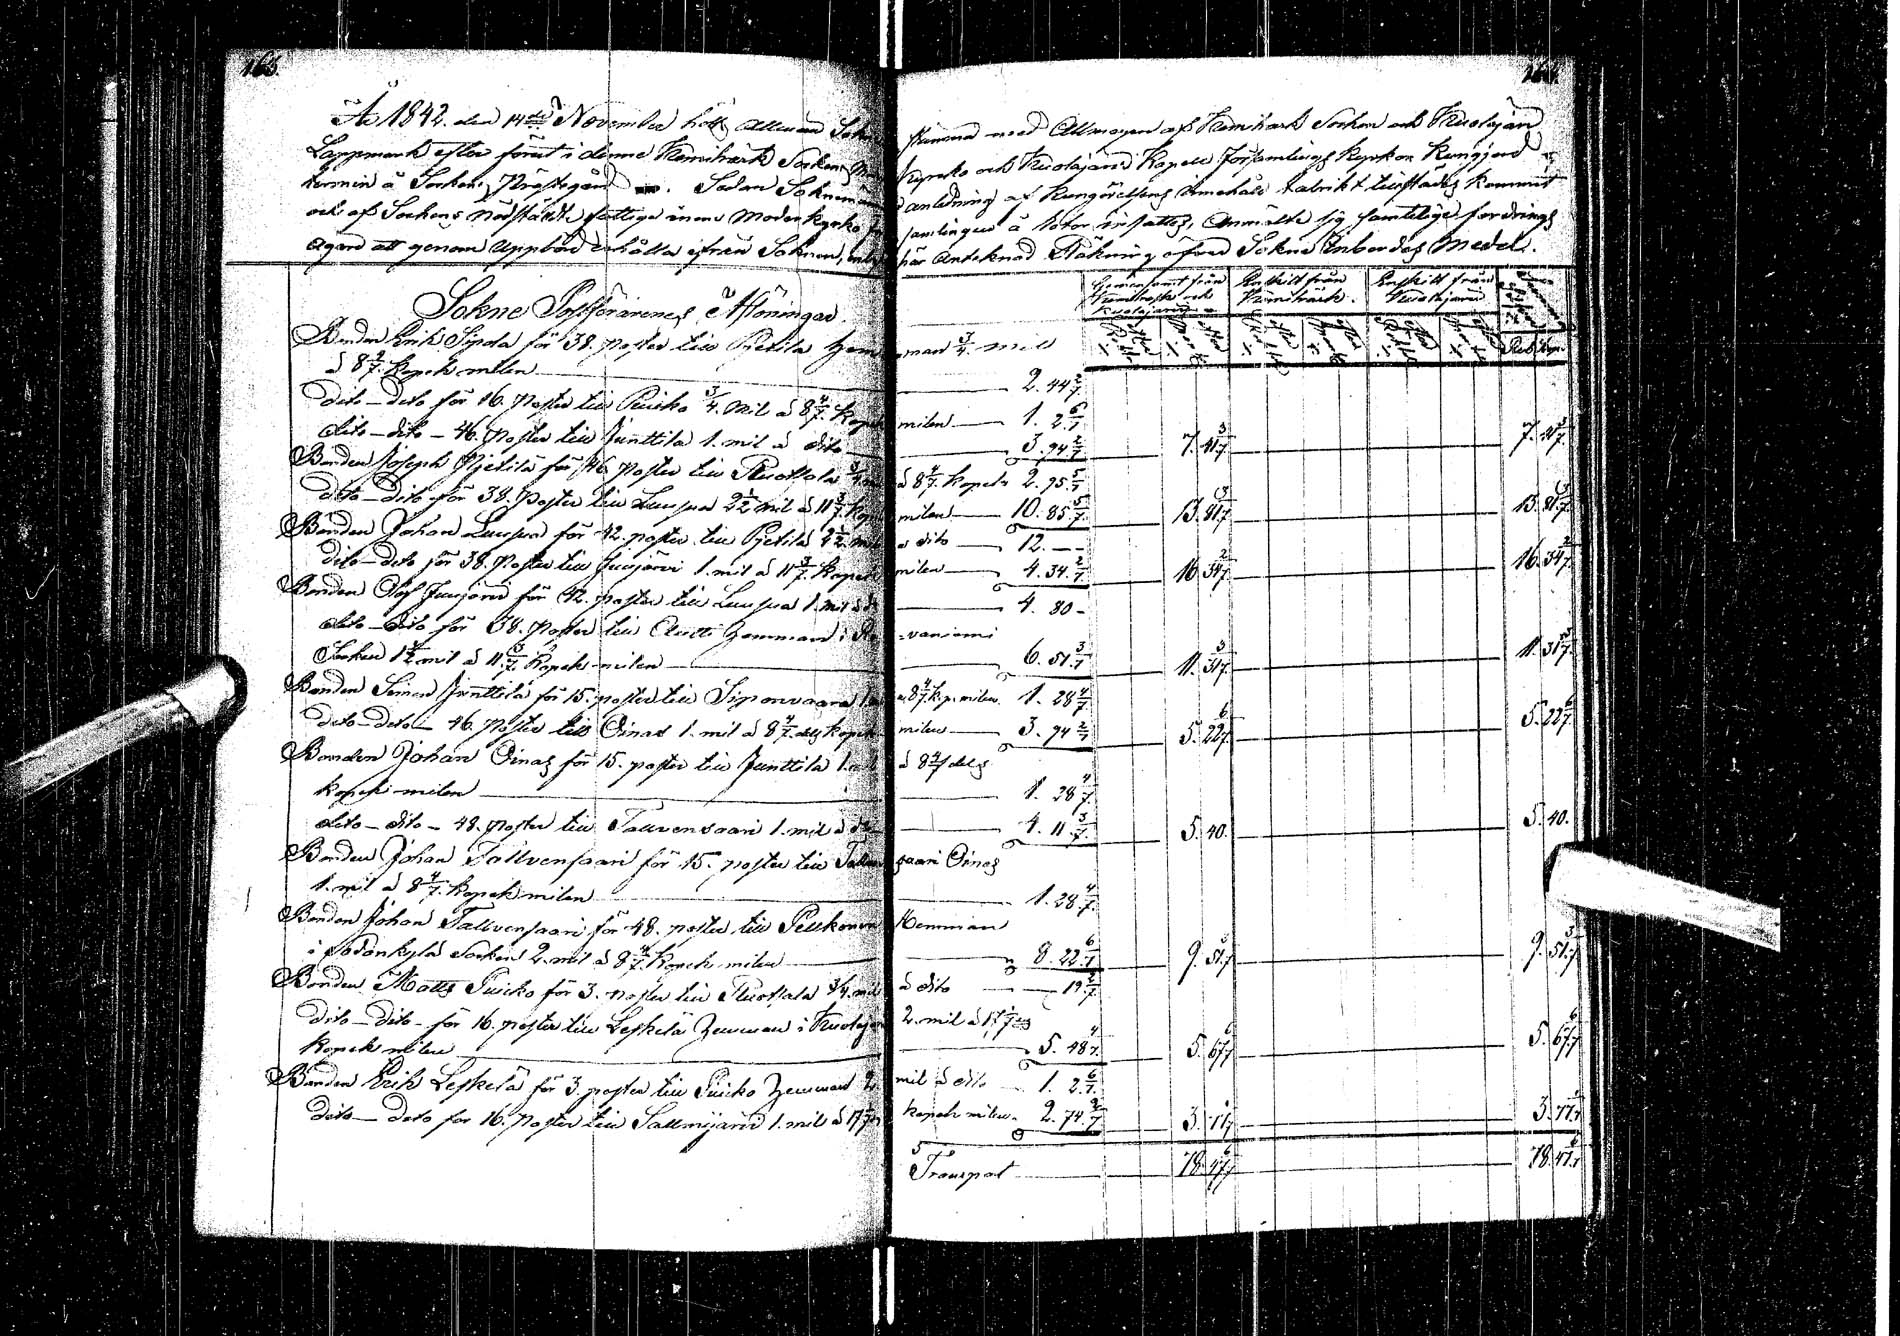 163.
År 1842. den 14de November hölls Allmän Sokne
Lappmark efter förut i denne Kemiträsk Socken
termin å Sockens Prästegård. Sedan Soknemän
och af Sockens nödstälde fattige inom Moderkyrko
ägare att genom Uppbörd erhålla ifrån Soknen, enligt
Sokne Postförarenes Aflöningar.
Bonden Erik Sipola för 38. poster till Pjetilä hem
à 8 4/7. kopek milen
dito – dito för 16. poster till Puikko 3/4. mil à 8 4/7. kopek
dito – dito – 46. poster till Junttila 1. mil à dito
Bonden Joseph Pjetilä för 46. poster till Ruottala 3/4. mil
dito – dito för 38. poster till Luusua 2 1/2 mil à 11 3/7. kopek
Bonden Johan Luusua för 42. poster till Pjetilä 2 1/2. mil
dito – dito för 38. poster till Juujärvi 1. mil à 11 3/7. kopek
Bonden Olof Juujärvi för 42. poster till Luusua 1. mil à do
dito – dito för 38. poster till Autti hemman i Ro
Socken 1 1/2 mil à 11 3/7. kopek milen
Bonden Simon Junttila för 15. poster till Siponvaara 1. mil
dito – dito – 46. poster till Oinas 1. mil à 8 4/7. dels kopek
Bonden Johan Oinas för 15. poster till Junttila 1. mil
kopek milen
dito – dito – 48. poster till Tallvensaari 1. mil à do
Bonden Johan Tallvensaari för 15. poster till Tallven
1. mil à 8 4/7. kopek milen
Bonden Johan Tallvensaari för 48. poster till Pelkonen
i Sodankylä Socken 2. mil à 8 4/7. kopek milen
Bonden Matts Puikko för 3. poster till Ruottala 3/4. mil
dito – dito – för 16. poster till Leskelä hemman i Kuolajärvi
kopek milen
Bonden Erik Leskelä för 3. poster till Puikko hemman 2.
dito – dito för 16. poster till Sallmijärvi 1. mil à 17 1/7
164.
stämma med Allmogen af Kemiträsk Socken och Kuolajärvi
kyrko och Kuolajärvi Kapell församlings kyrkor kungjord
anledning af kungörelsens innehåll talrikt tillstädes kommit
samlingen å rotor insattes, Anmälte sig samtelige fordrings
här Antecknad Räkning öfver Sokne Enbördes Medel.
Gemensamt från Kemiträsk och Kuolajärvi
Enskilt från Kemiträsk.
Enskilt från Kuolajärvi
Rub. kop.
man 3/4. mil
2. 44 2/7.
milen 1. 2 6/7
3. 94 2/7 7. 41 3/7. 7. 41 3/7.
à 8 4/7. kopek 2. 95. 5/7
milen 10. 85 5/7. 13. 81 3/7. 13. 81 3/7.
à dito 12. – –
milen 4. 34. 2/7 16. 34 2/7. 16. 34 2/7.
4. 80 –
-vaniemi
6. 51. 3/7 11. 31 3/7. 11. 31 3/7.
à 8 4/7 k.p. milen 1. 28 4/7
milen 3. 94 2/7 5. 22 6/7. 5. 22 6/7.
à 8 4/7 dels
1. 28 4/7.
4. 11 3/7. 5. 40. 5. 40.
saari Oinas
1. 28 4/7.
Hemman
8. 22 6/7 9. 51 3/7 9. 51 3/7
à dito 19 2/7.
2. mil à 17 1/7 dels
5. 48 4/7. 5. 67 6/7 5. 67 6/7
mil à dito 1. 2 6/7.
kopek milen. 2. 74. 2/7 3. 77 1/7 3. 77 1/7
Transport 78. 47 6/7 78. 47 6/7